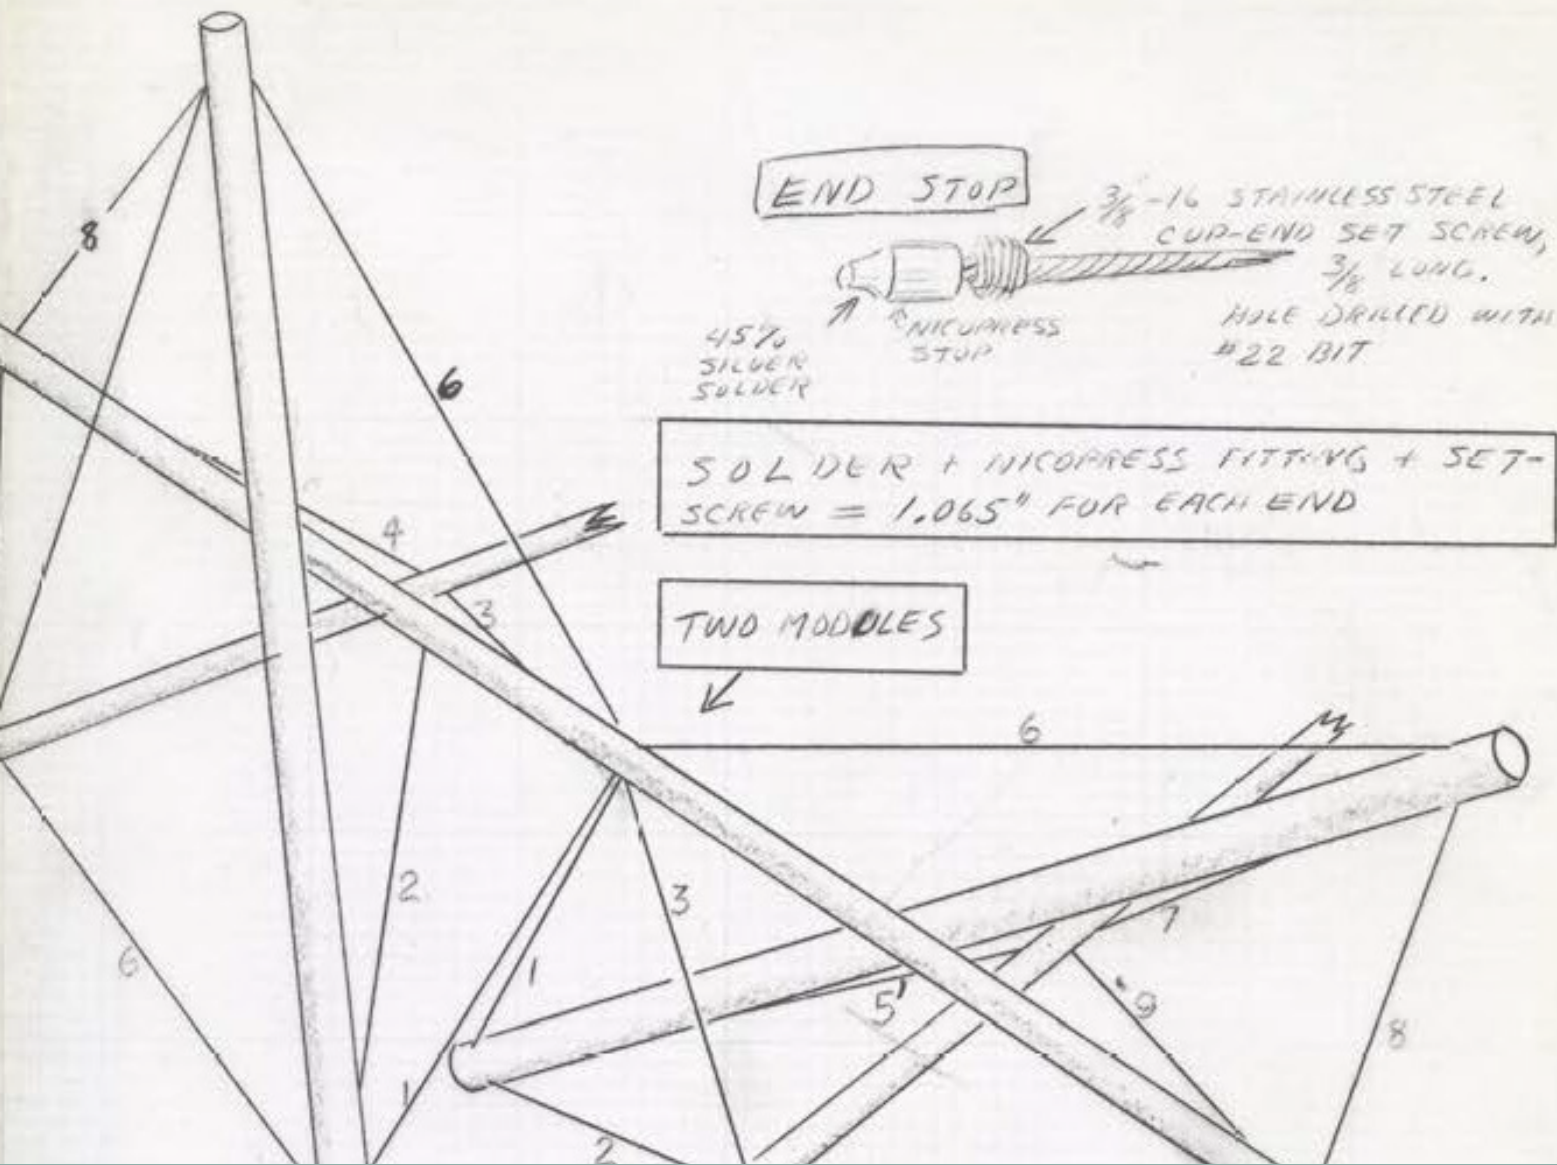 END STOP
3/8-16 STAINLESS STEEL
CUP-END SET SCREW,
3/8 LONG.
HOLE DRILLED WITH
#22 BIT
45%
SILVER
SOLDER
NICOPRESS
STOP
SOLDER + NICOPRESS FITTING + SET-
SCREW = 1.065" FOR EACH END
TWO MODULES
8
6
4
3
6
2
3
7
6
1
5
9
8
1
2